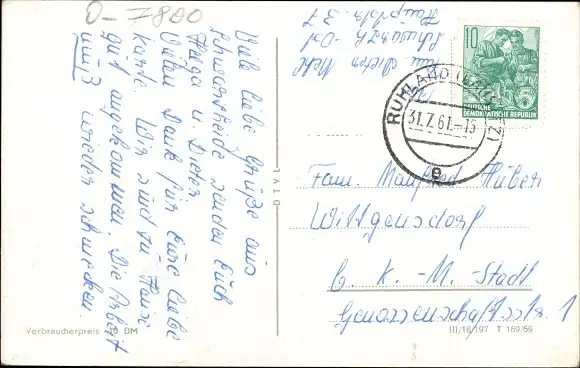 D-7800
Viele liebe Grüße aus
Schwarzheide senden Euch
Helga u. Dieter
Vielen Dank für Eure liebe
Karte. Wir sind zu Hause
gut angekommen. Die Arbeit
muß wieder schmecken.
Dieter
Schwarzh.-Ost
Hauptstr. 37
10
DEUTSCHE
DEMOKRATISCHE REPUBLIK
RUHLAND
31.7.61.-15
e
Fam. Manfred Huber
Wittgensdorf
b. K.-M.-Stadt
Genossenschaftsstr. 1
DTVL
Verbraucherpreis -,20 DM
(II/18/197 T 169/59